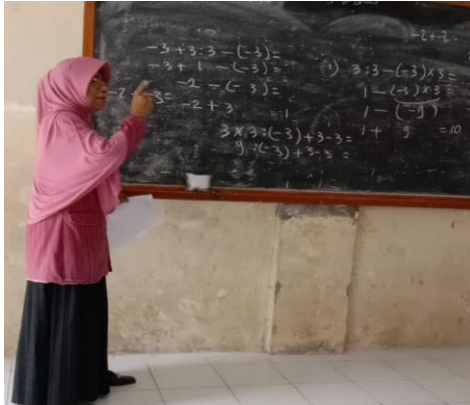 -3+3:3-(-3)=
-3+1-(-3)=
-2-(-3)=
-2+3 =1
3×3:(-3)+3-3=
9:(-3)+3-3=
-2+2
3:3-(-3)×3=
1-(-3)×3=
1-(-9)
1+9 =10